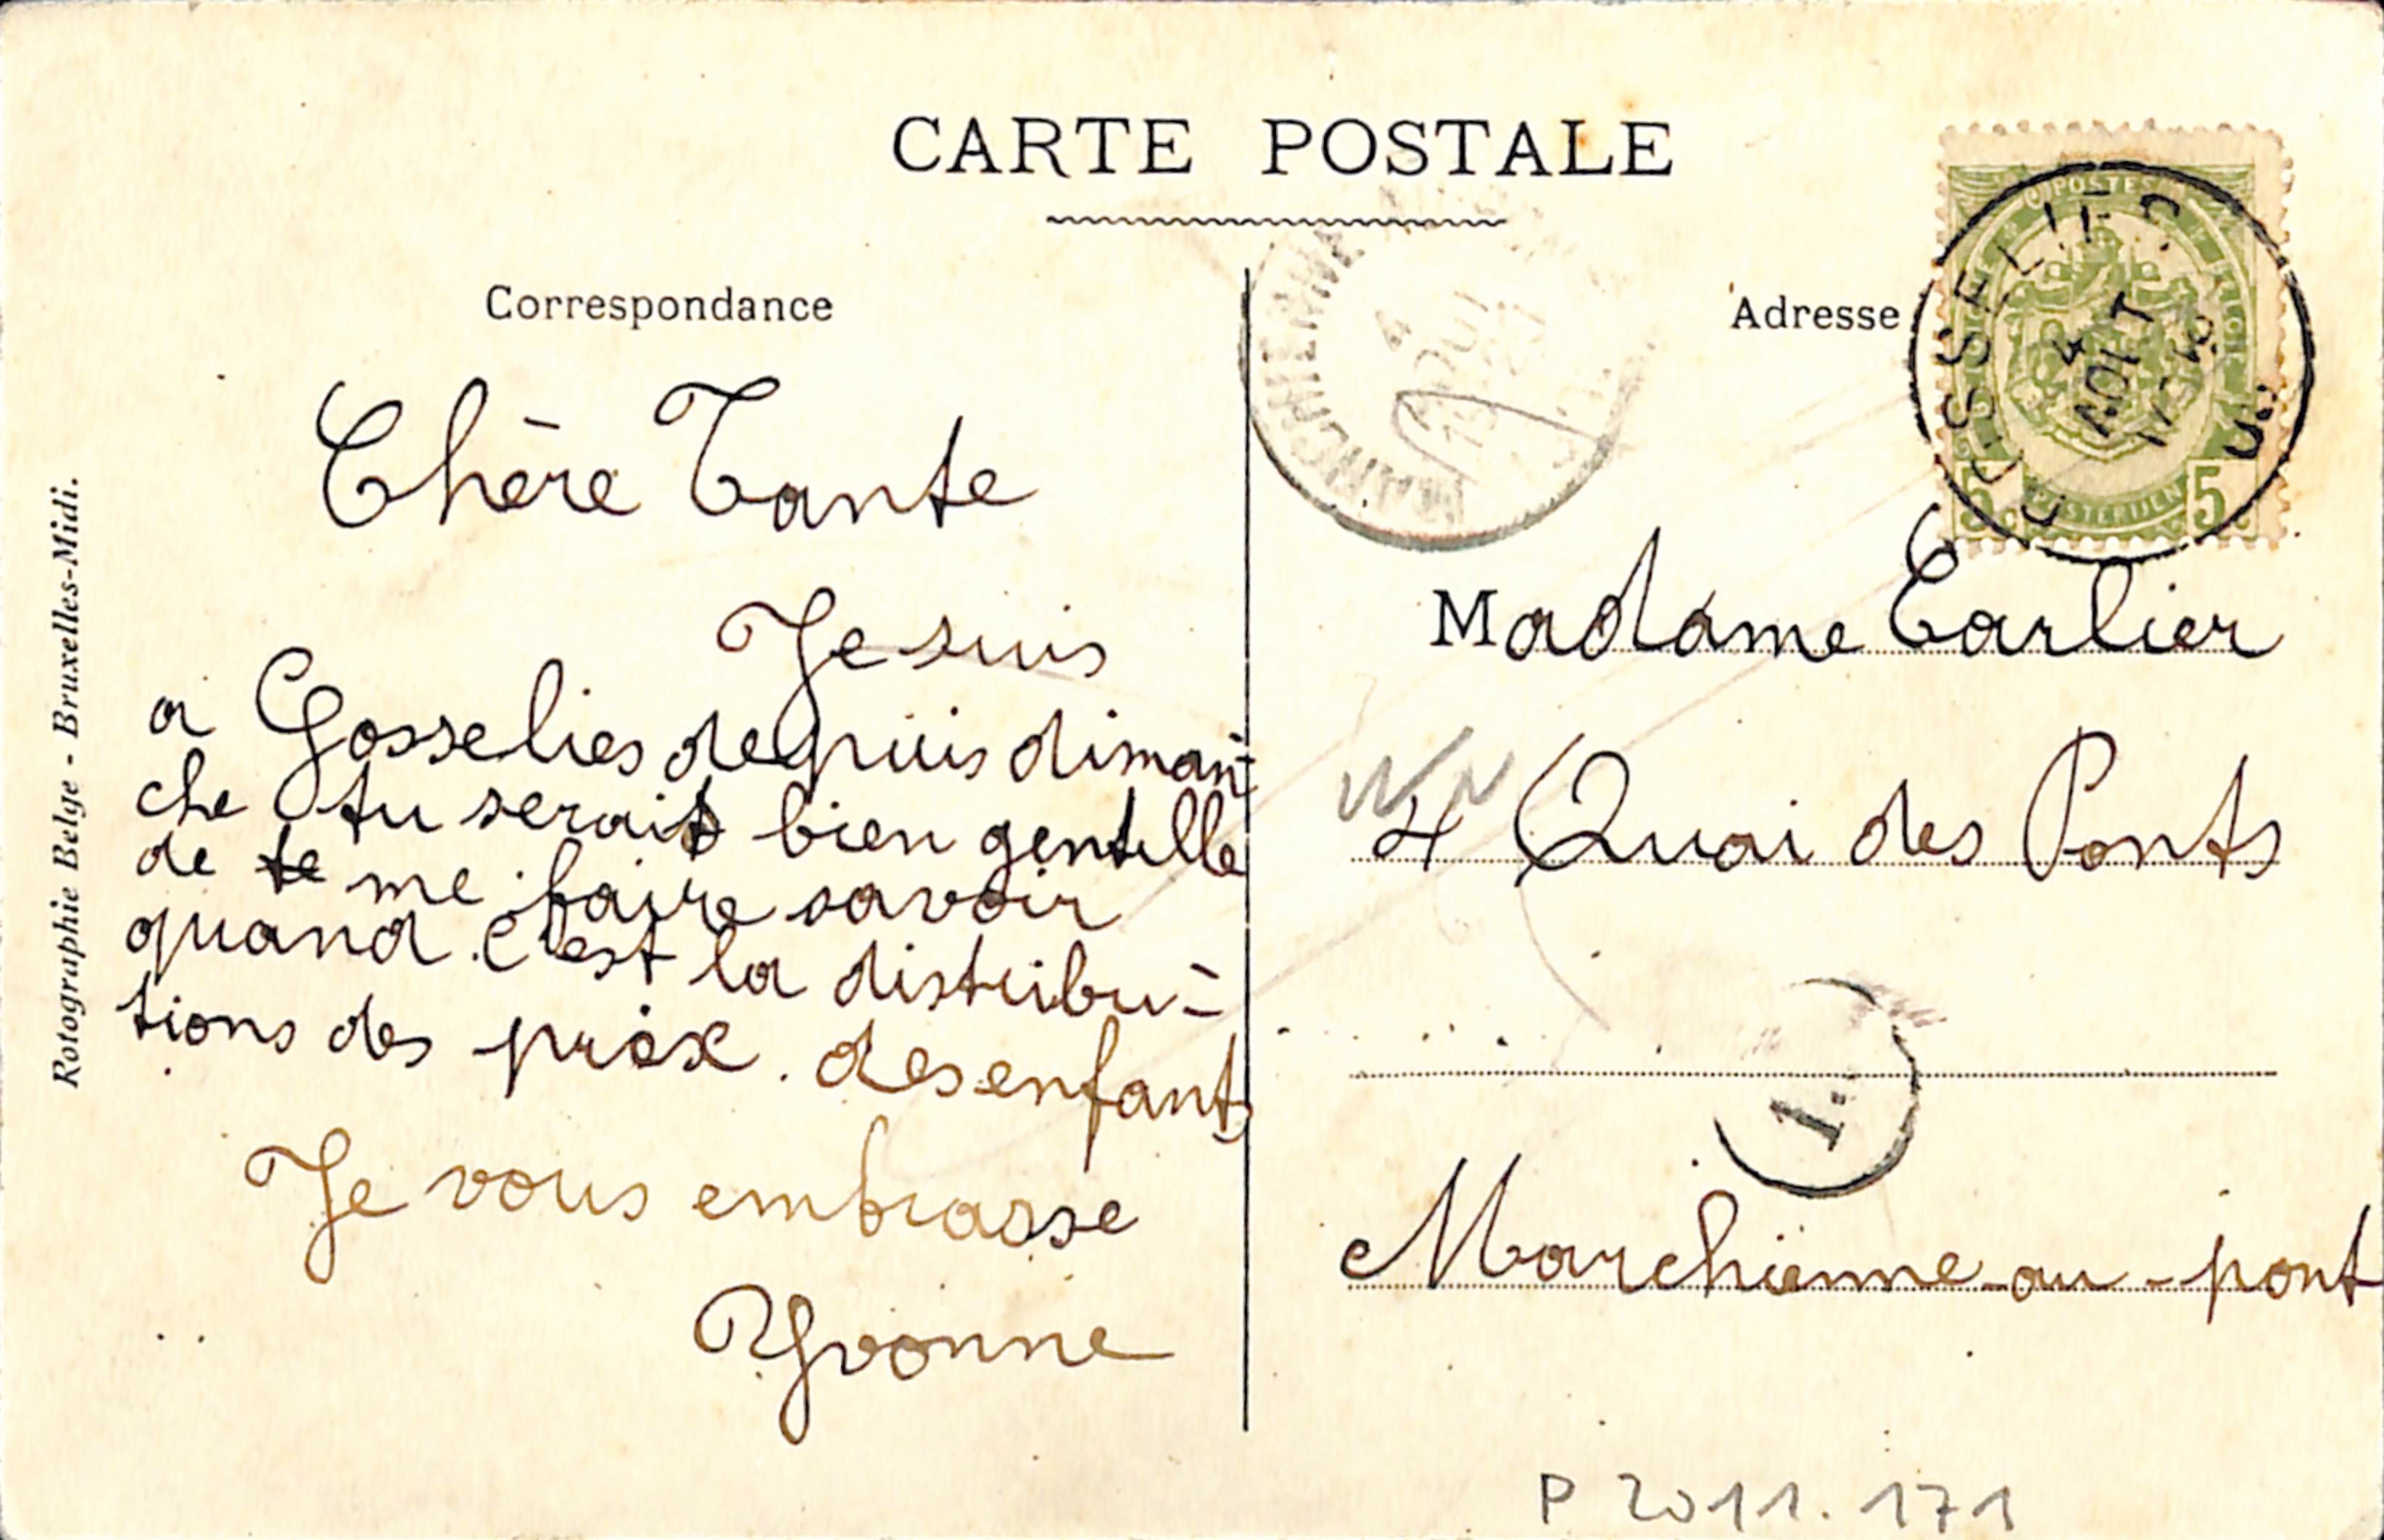 CARTE POSTALE
Correspondance
Adresse
Chère Tante
Je suis
a Gosselies depuis diman-
che tu serait bien gentille
de te me faire savoir
quand c'est la distribu-
tions des prix. des enfants
Je vous embrasse
Yvonne
Rotographie Belge - Bruxelles-Midi.
POSTES
POSTERIJEN
5c 5c
4
AOUT
MARCHIENNE
4
AOUT
Madame Carlier
4 Quai des Ponts
1
Marchienne-au-pont
P 2011.171